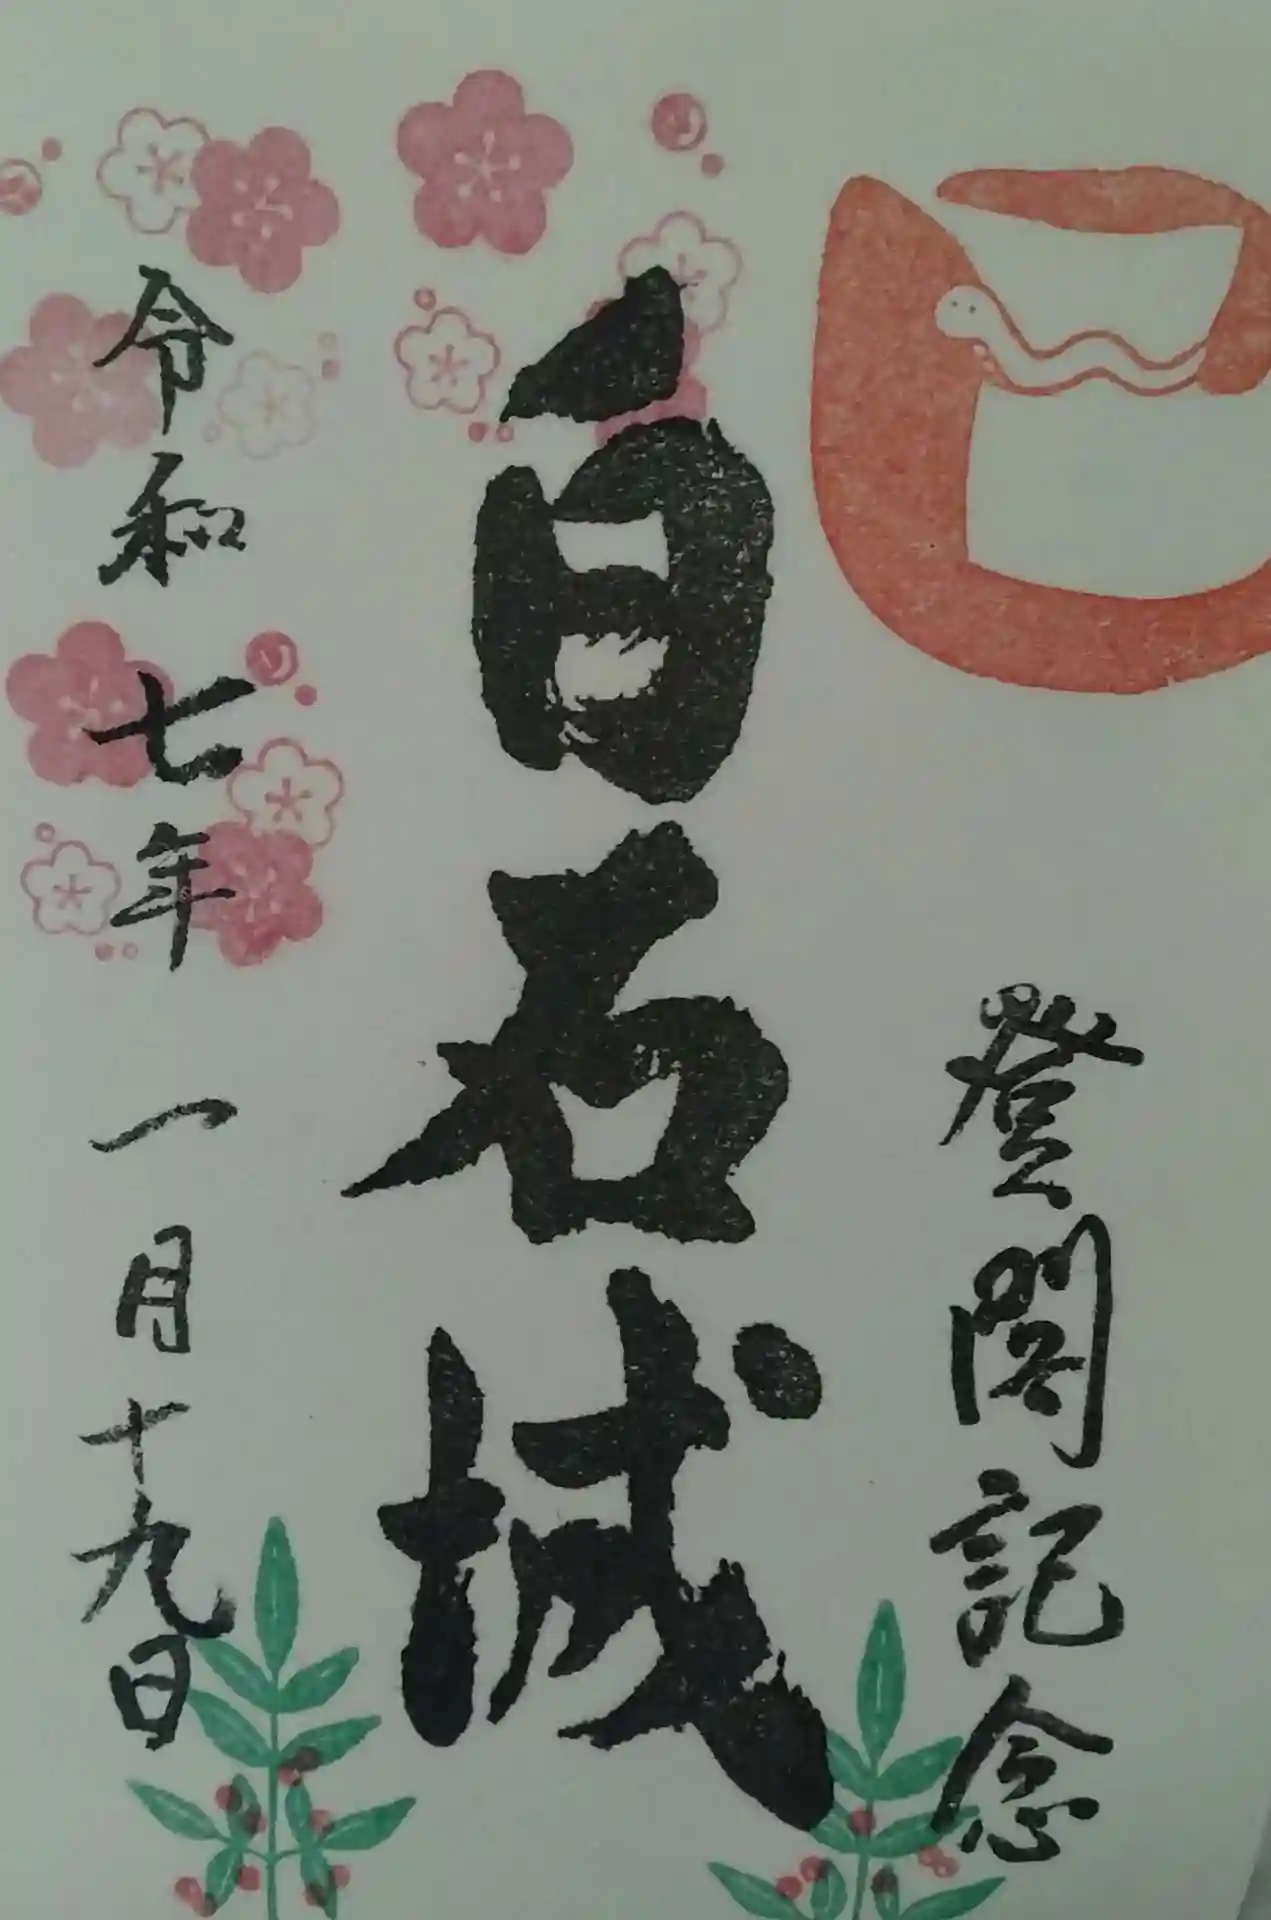 巳
登閣記念
白石城
令和七年 一月十九日